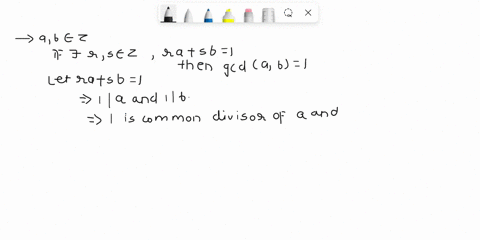 → a, b ∈ Z
If ∃ r, s ∈ Z , ra + sb = 1
then gcd (a, b) = 1
Let ra + sb = 1
⇒ 1 | a and 1 | b.
⇒ 1 is common divisor of a and